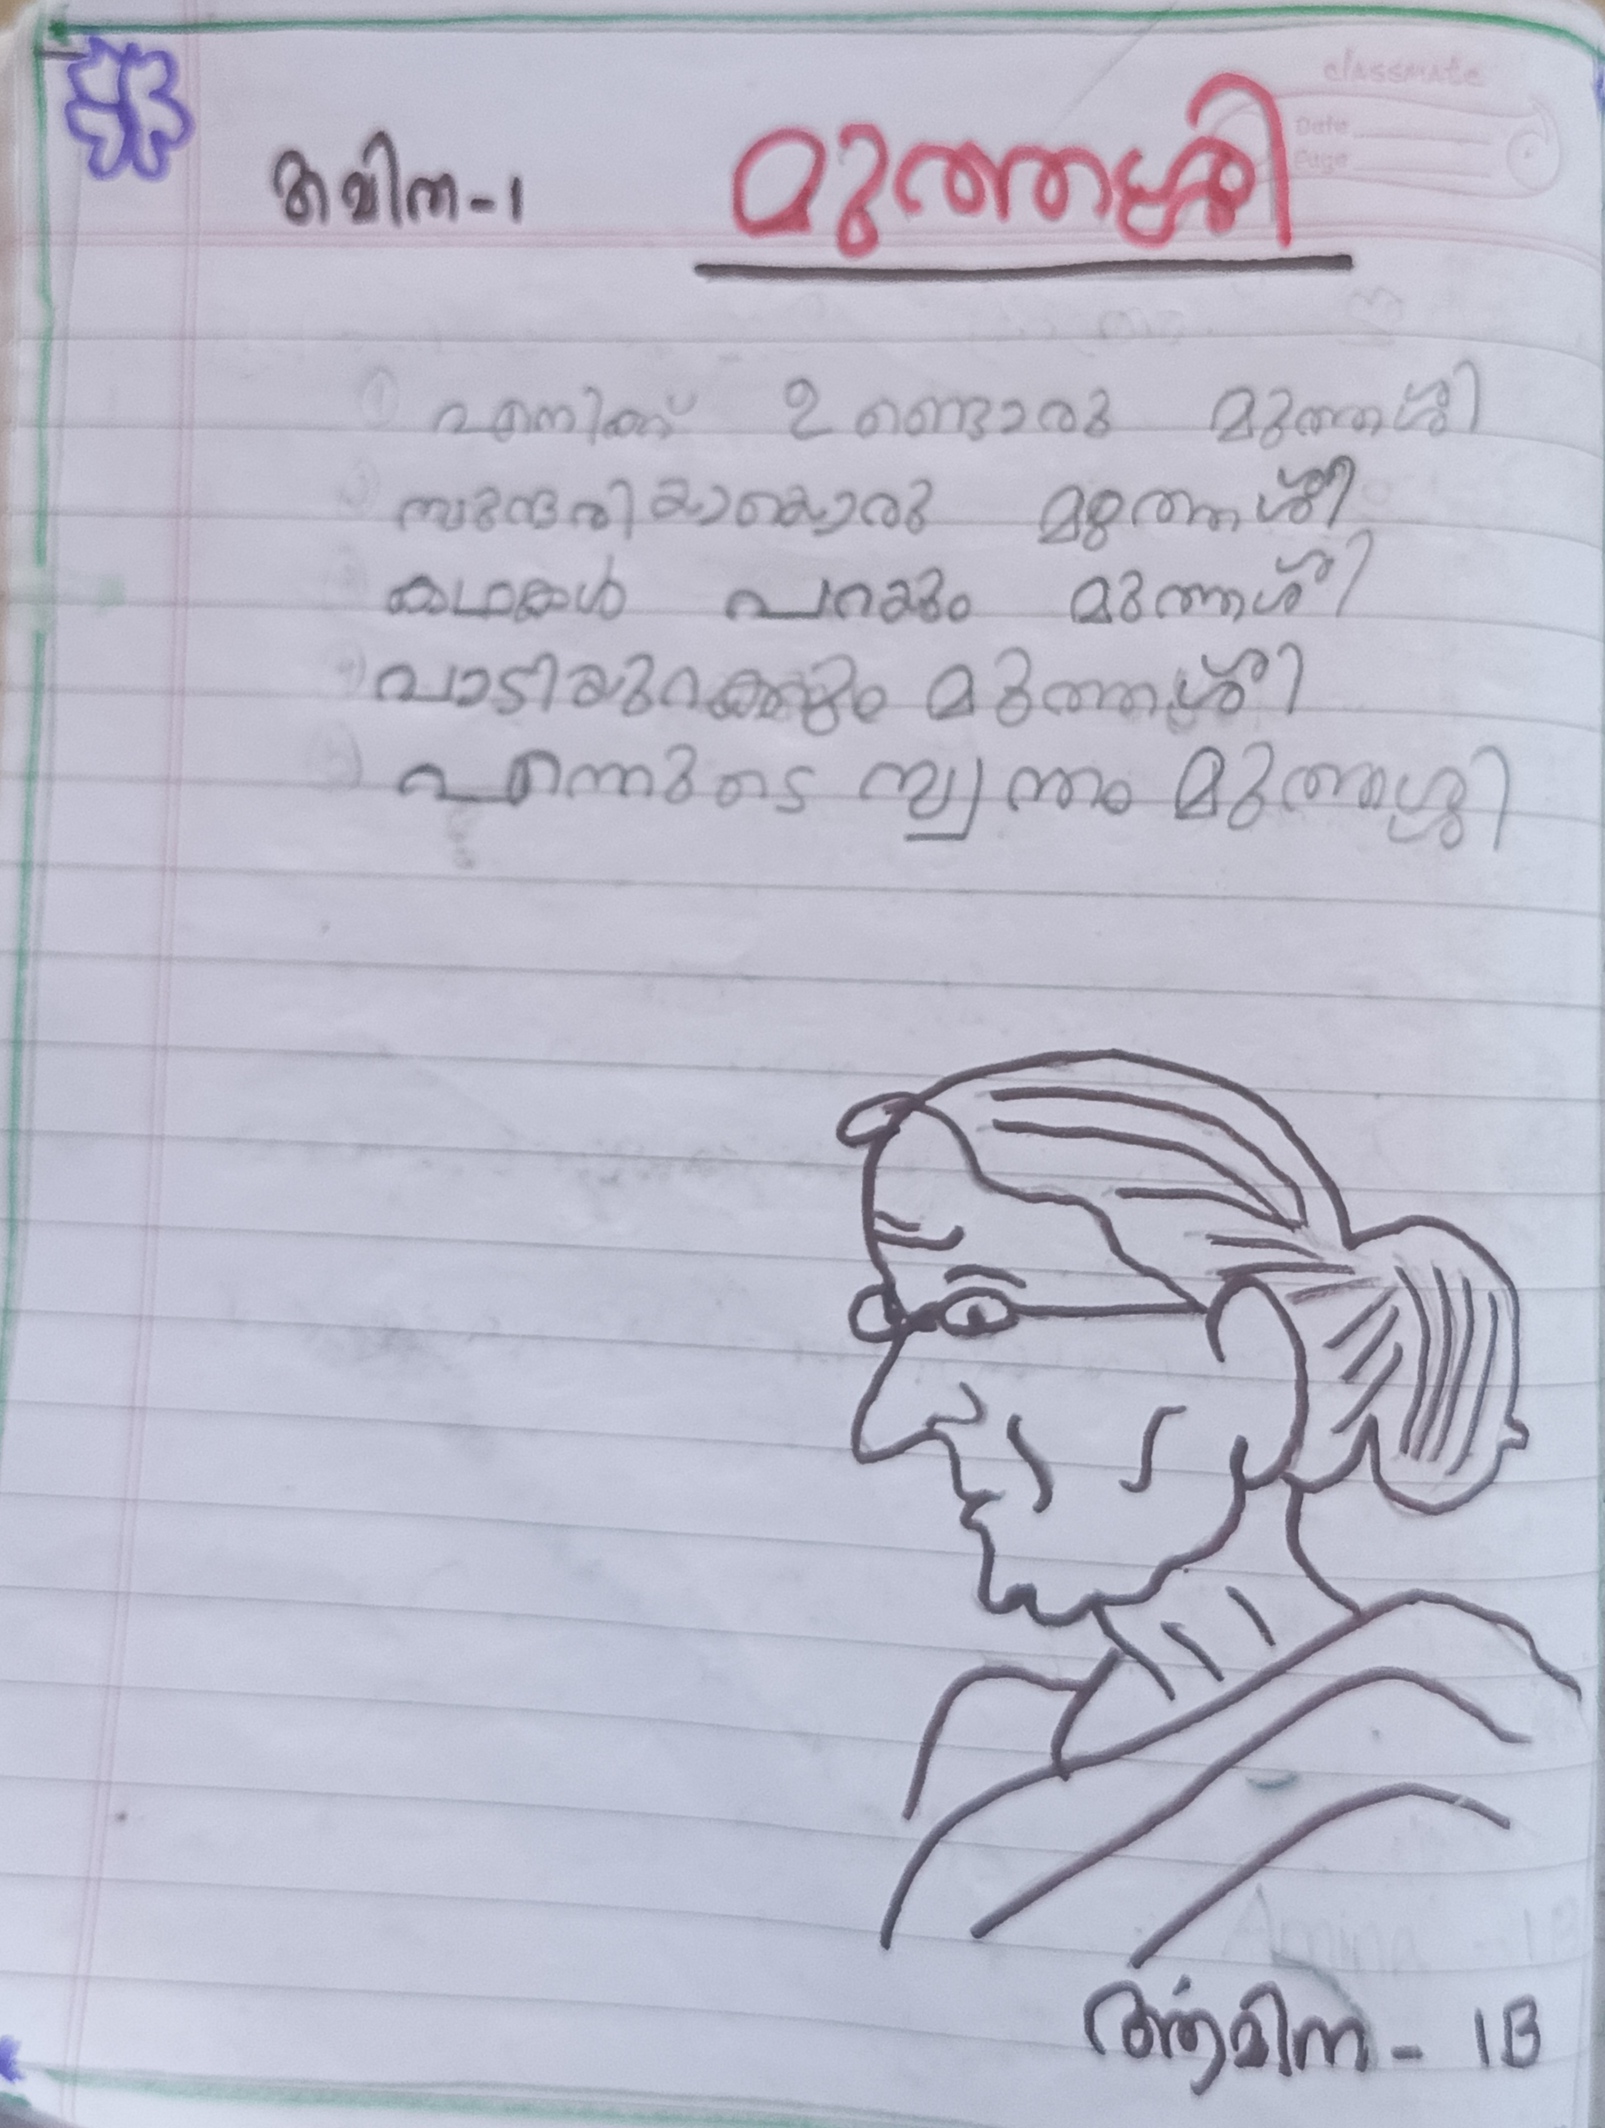 കവിത-1
മുത്തശ്ശി
classmate
Date
Page
എനിക്ക് ഉണ്ടൊരു മുത്തശ്ശി
സുന്ദരിയായൊരു മുത്തശ്ശി
കഥകൾ പറയും മുത്തശ്ശി
പാടിയുറക്കും മുത്തശ്ശി
എന്നുടെ സ്വന്തം മുത്തശ്ശി
Amina - 1B
ആമിന - 1B